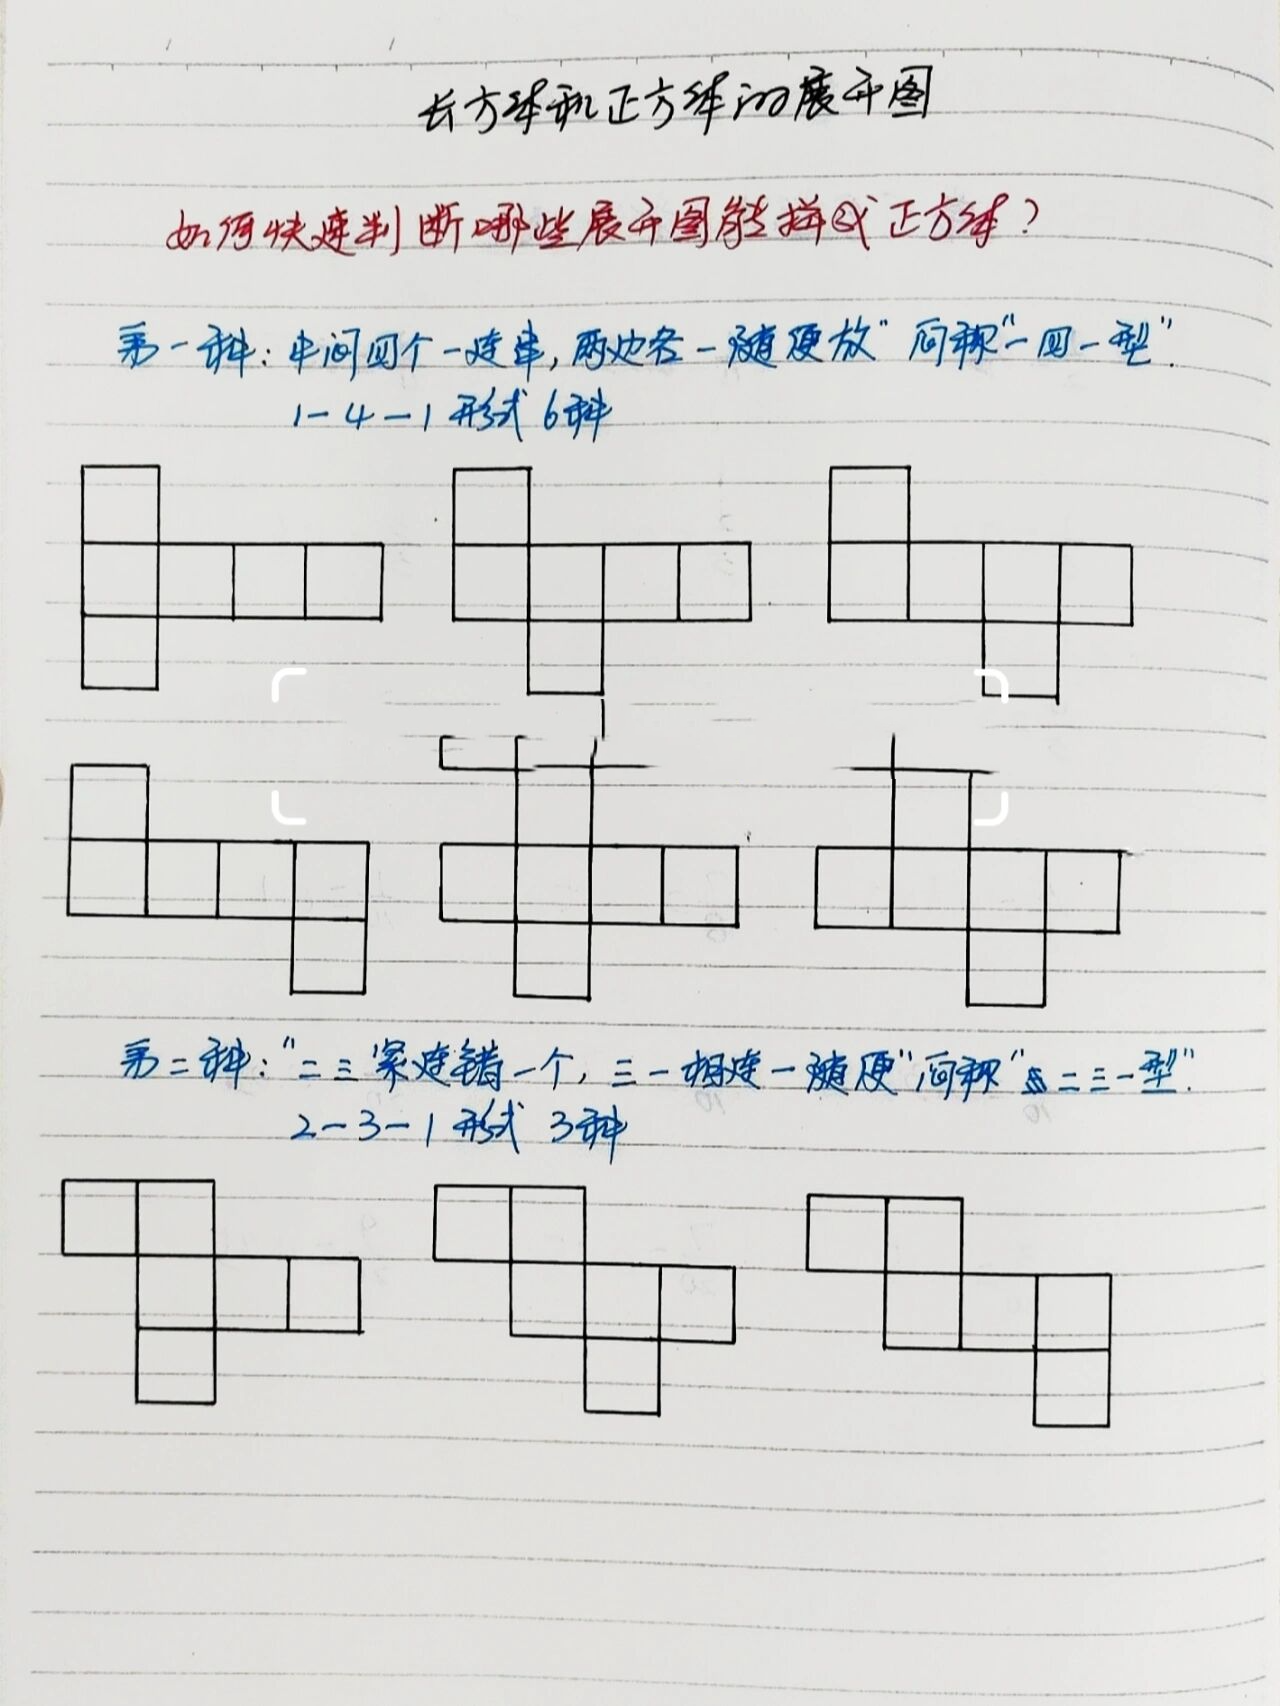 长方体和正方体的展开图
如何快速判断哪些展开图能拼成正方体？
第一种：中间四个一连串，两边各一随便放"简称"一四一型".
1-4-1 形式 6种
第二种："二三紧连错一个，三一相连一随便"简称"二三一型".
2-3-1 形式 3种